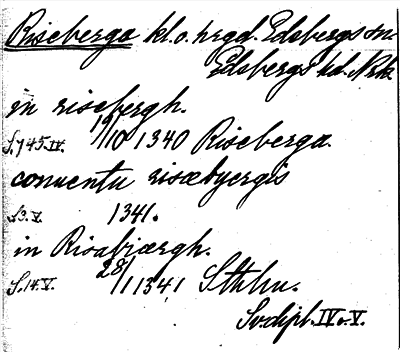 Riseberga kl. o. hrgd. Edsbergs sn.
Edsbergs hd. Nrk.
in risebergh.
S. 745. IV. 19/10 1340 Riseberga.
conuentu risæbyergis
S. 3. V. 1341.
in Risabiærgh.
S. 14. V. 28/1 1341 Sthlm.
Sv. dipl. IV o. V.